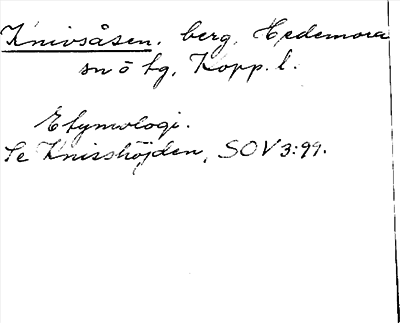 Knivsåsen, berg, Hedemora
sn o tg, Kopp. l.
Etymologi.
Se Knivshöjden, SOV 3:99.